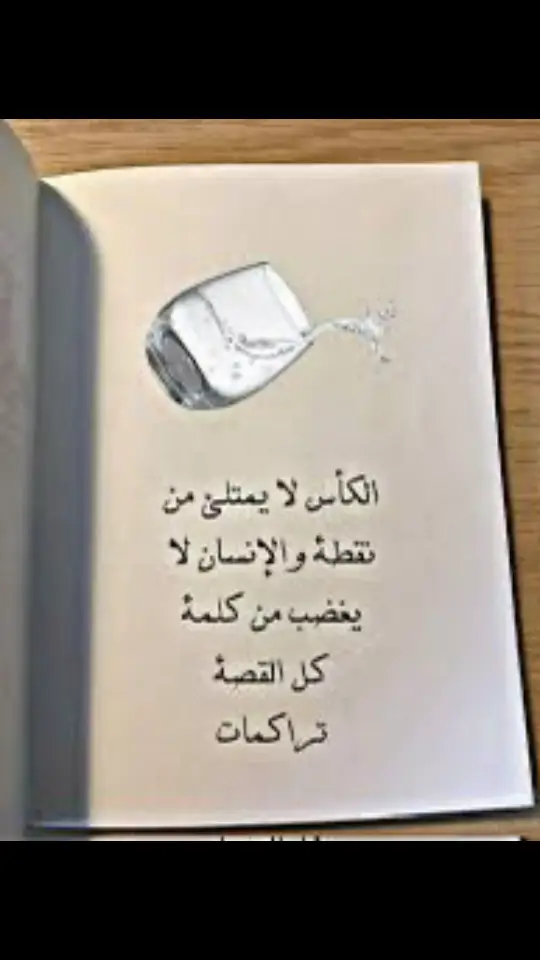 الكأس لا يمتلئ من
نقطة والإنسان لا
يغضب من كلمة
كل القصة
تراكمات